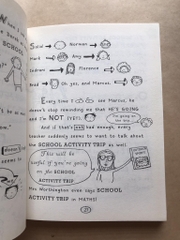 Norman
Mark Amy
Indrani Florence
Brad Oh yes, and Marcus.
Every time I see Marcus, he
doesn't stop reminding me that HE'S GOING
and I'm NOT (YET).
I'm going on
the trip...
And if that's not bad enough, every
teacher suddenly seems to want to talk about
the SCHOOL ACTIVITY TRIP as well.
This will be
useful if you're going
on the SCHOOL
ACTIVITY TRIP.
Mrs Worthington even says SCHOOL
ACTIVITY TRIP in MATHS!
SCHOOL